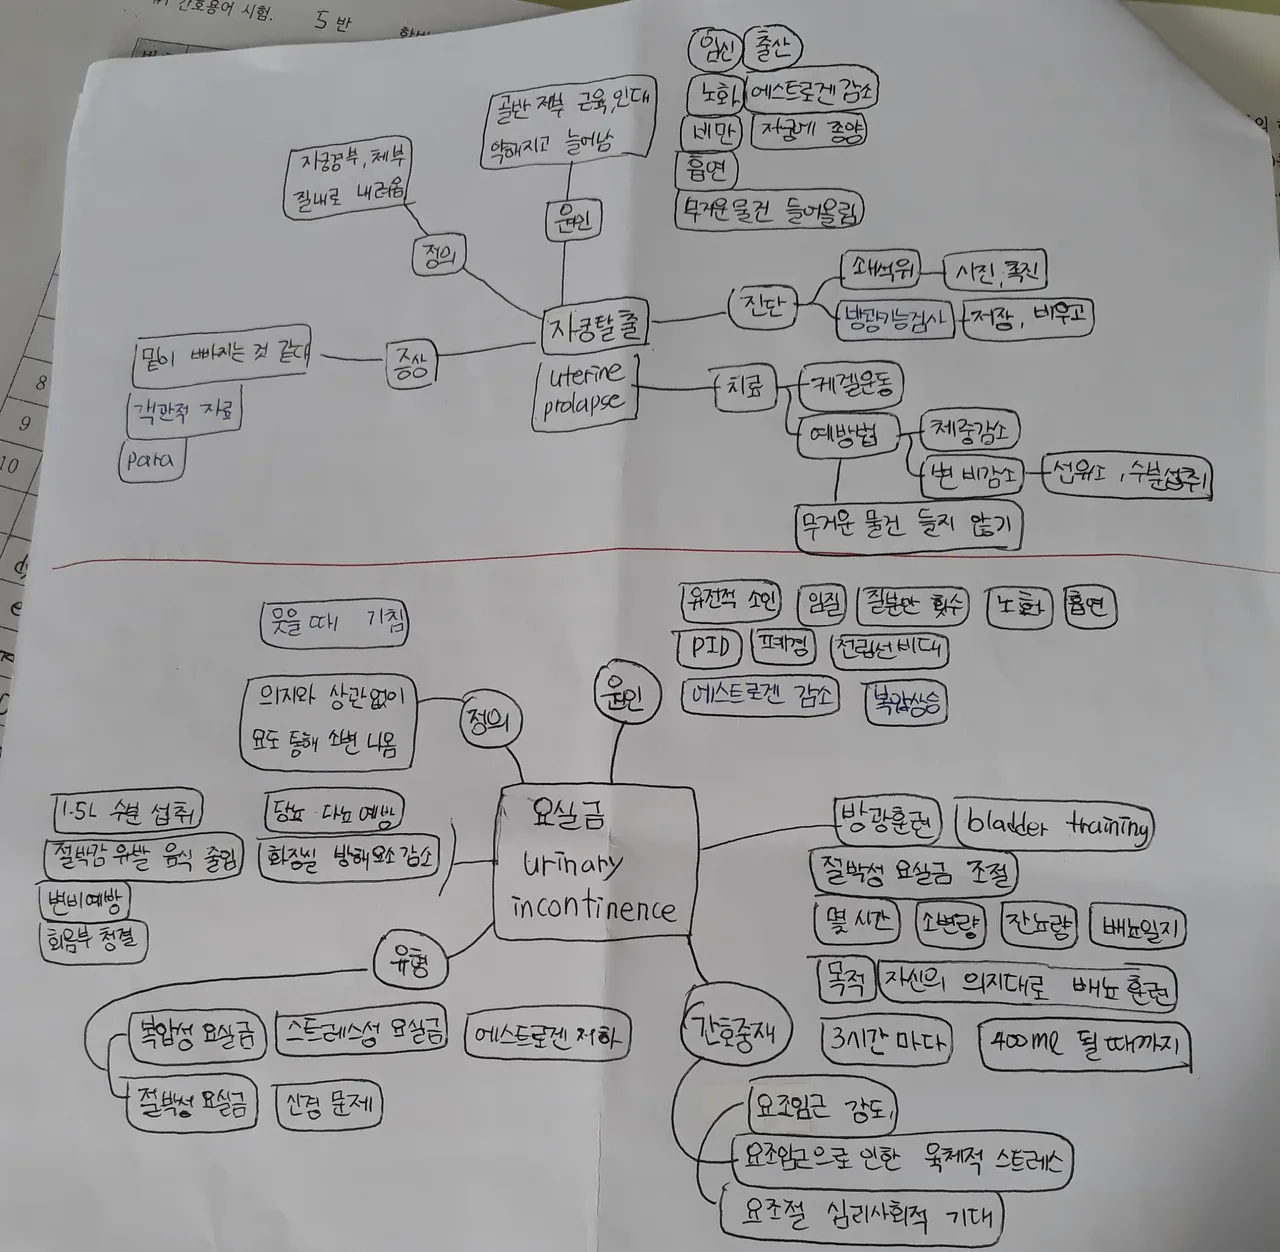 간호용어 시험.
5 반
임신
출산
노화
에스트로겐 감소
비만
자궁에 종양
흡연
무거운 물건 들어올림
골반 저부 근육, 인대
약해지고 늘어남
원인
자궁경부, 체부
질내로 내려옴
정의
자궁탈출
uterine
prolapse
증상
밑이 빠지는 것 같다
객관적 자료
para
진단
쇄석위
시진, 촉진
방광기능검사
저장, 비우고
치료
케겔운동
예방법
체중감소
변비감소
섬유소, 수분섭취
무거운 물건 들지 않기
8
9
10
웃을 때 기침
의지와 상관없이
요도 통해 소변 나옴
정의
원인
유전적 소인
임질
질분만 횟수
노화
흡연
PID
폐경
전립선비대
에스트로겐 감소
복압상승
요실금
urinary
incontinence
1.5L 수분 섭취
당뇨·다뇨 예방
절박감 유발 음식 줄임
화장실 방해요소 감소
변비예방
회음부 청결
유형
복압성 요실금
스트레스성 요실금
에스트로겐 저하
절박성 요실금
신경 문제
방광훈련
bladder training
절박성 요실금 조절
몇 시간
소변량
잔뇨량
배뇨일지
목적
자신의 의지대로 배뇨 훈련
3시간 마다
400ml 될 때까지
간호중재
요조임근 강도,
요조임근으로 인한 육체적 스트레스
요조절 심리사회적 기대